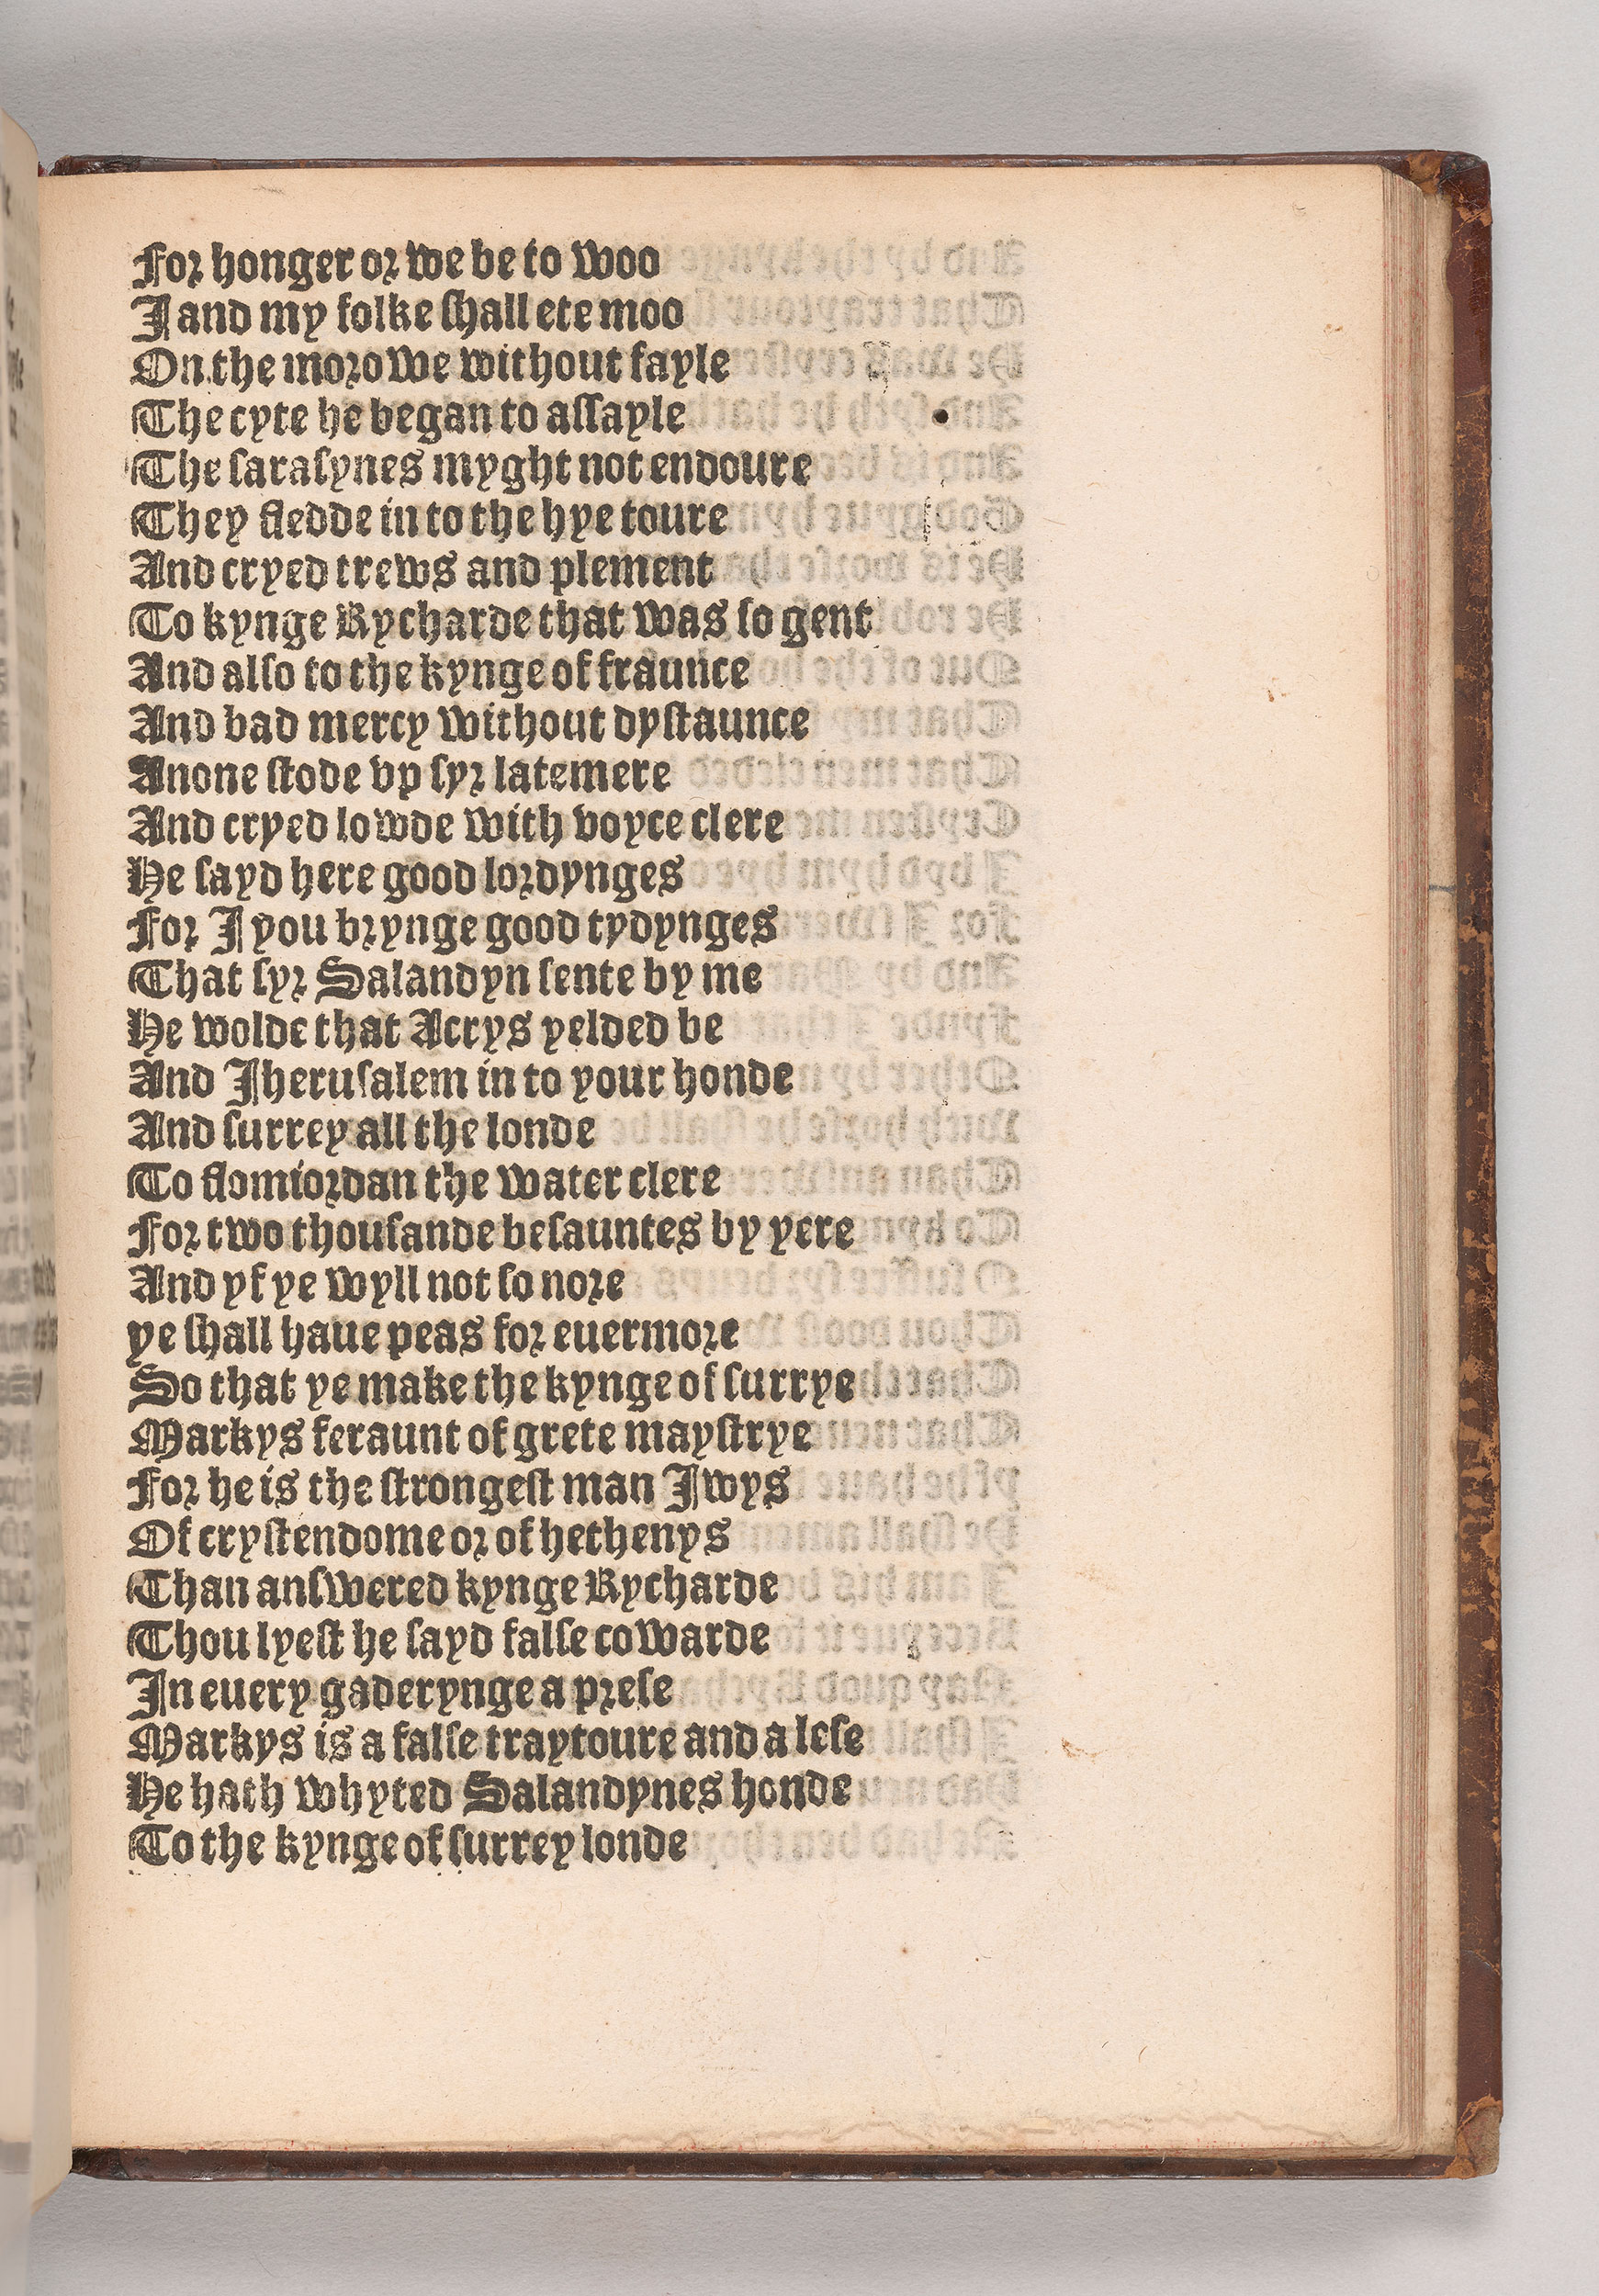 For honger or we be to woo
I and my folke shall ete moo
On the morowe without fayle
The cyte he began to assayle
The sarasynes myght not endoure
They fledde in to the hye toure
And cryed trews and plement
To kynge Rycharde that was so gent
And also to the kynge of fraunce
And bad mercy without dystaunce
Anone stode vp syr latemere
And cryed lowde with voyce clere
He sayd here good lordynges
For I you brynge good tydynges
That syr Salandyn sente by me
He wolde that Acrys yelded be
And Jherusalem in to your honde
And surrey all the londe
To flomiordan the water clere
For two thousande besauntes by yere
And yf ye wyll not so nore
ye shall haue peas for euermore
So that ye make the kynge of surrye
Markys feraunt of grete maystrye
For he is the strongest man Iwys
Of crystendome or of hethenys
Than answered kynge Rycharde
Thou lyest he sayd false cowarde
In euery gaderynge a prese
Markys is a false traytoure and a lese
He hath whyted Salandynes honde
To the kynge of surrey londe